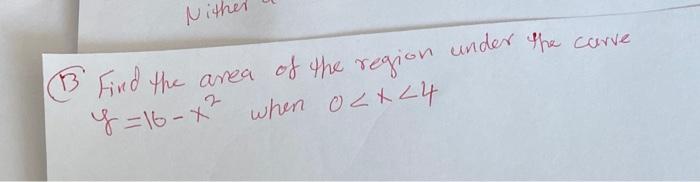 Nither
(B) Find the area of the region under the curve
y = 16 - x² when 0 < x < 4